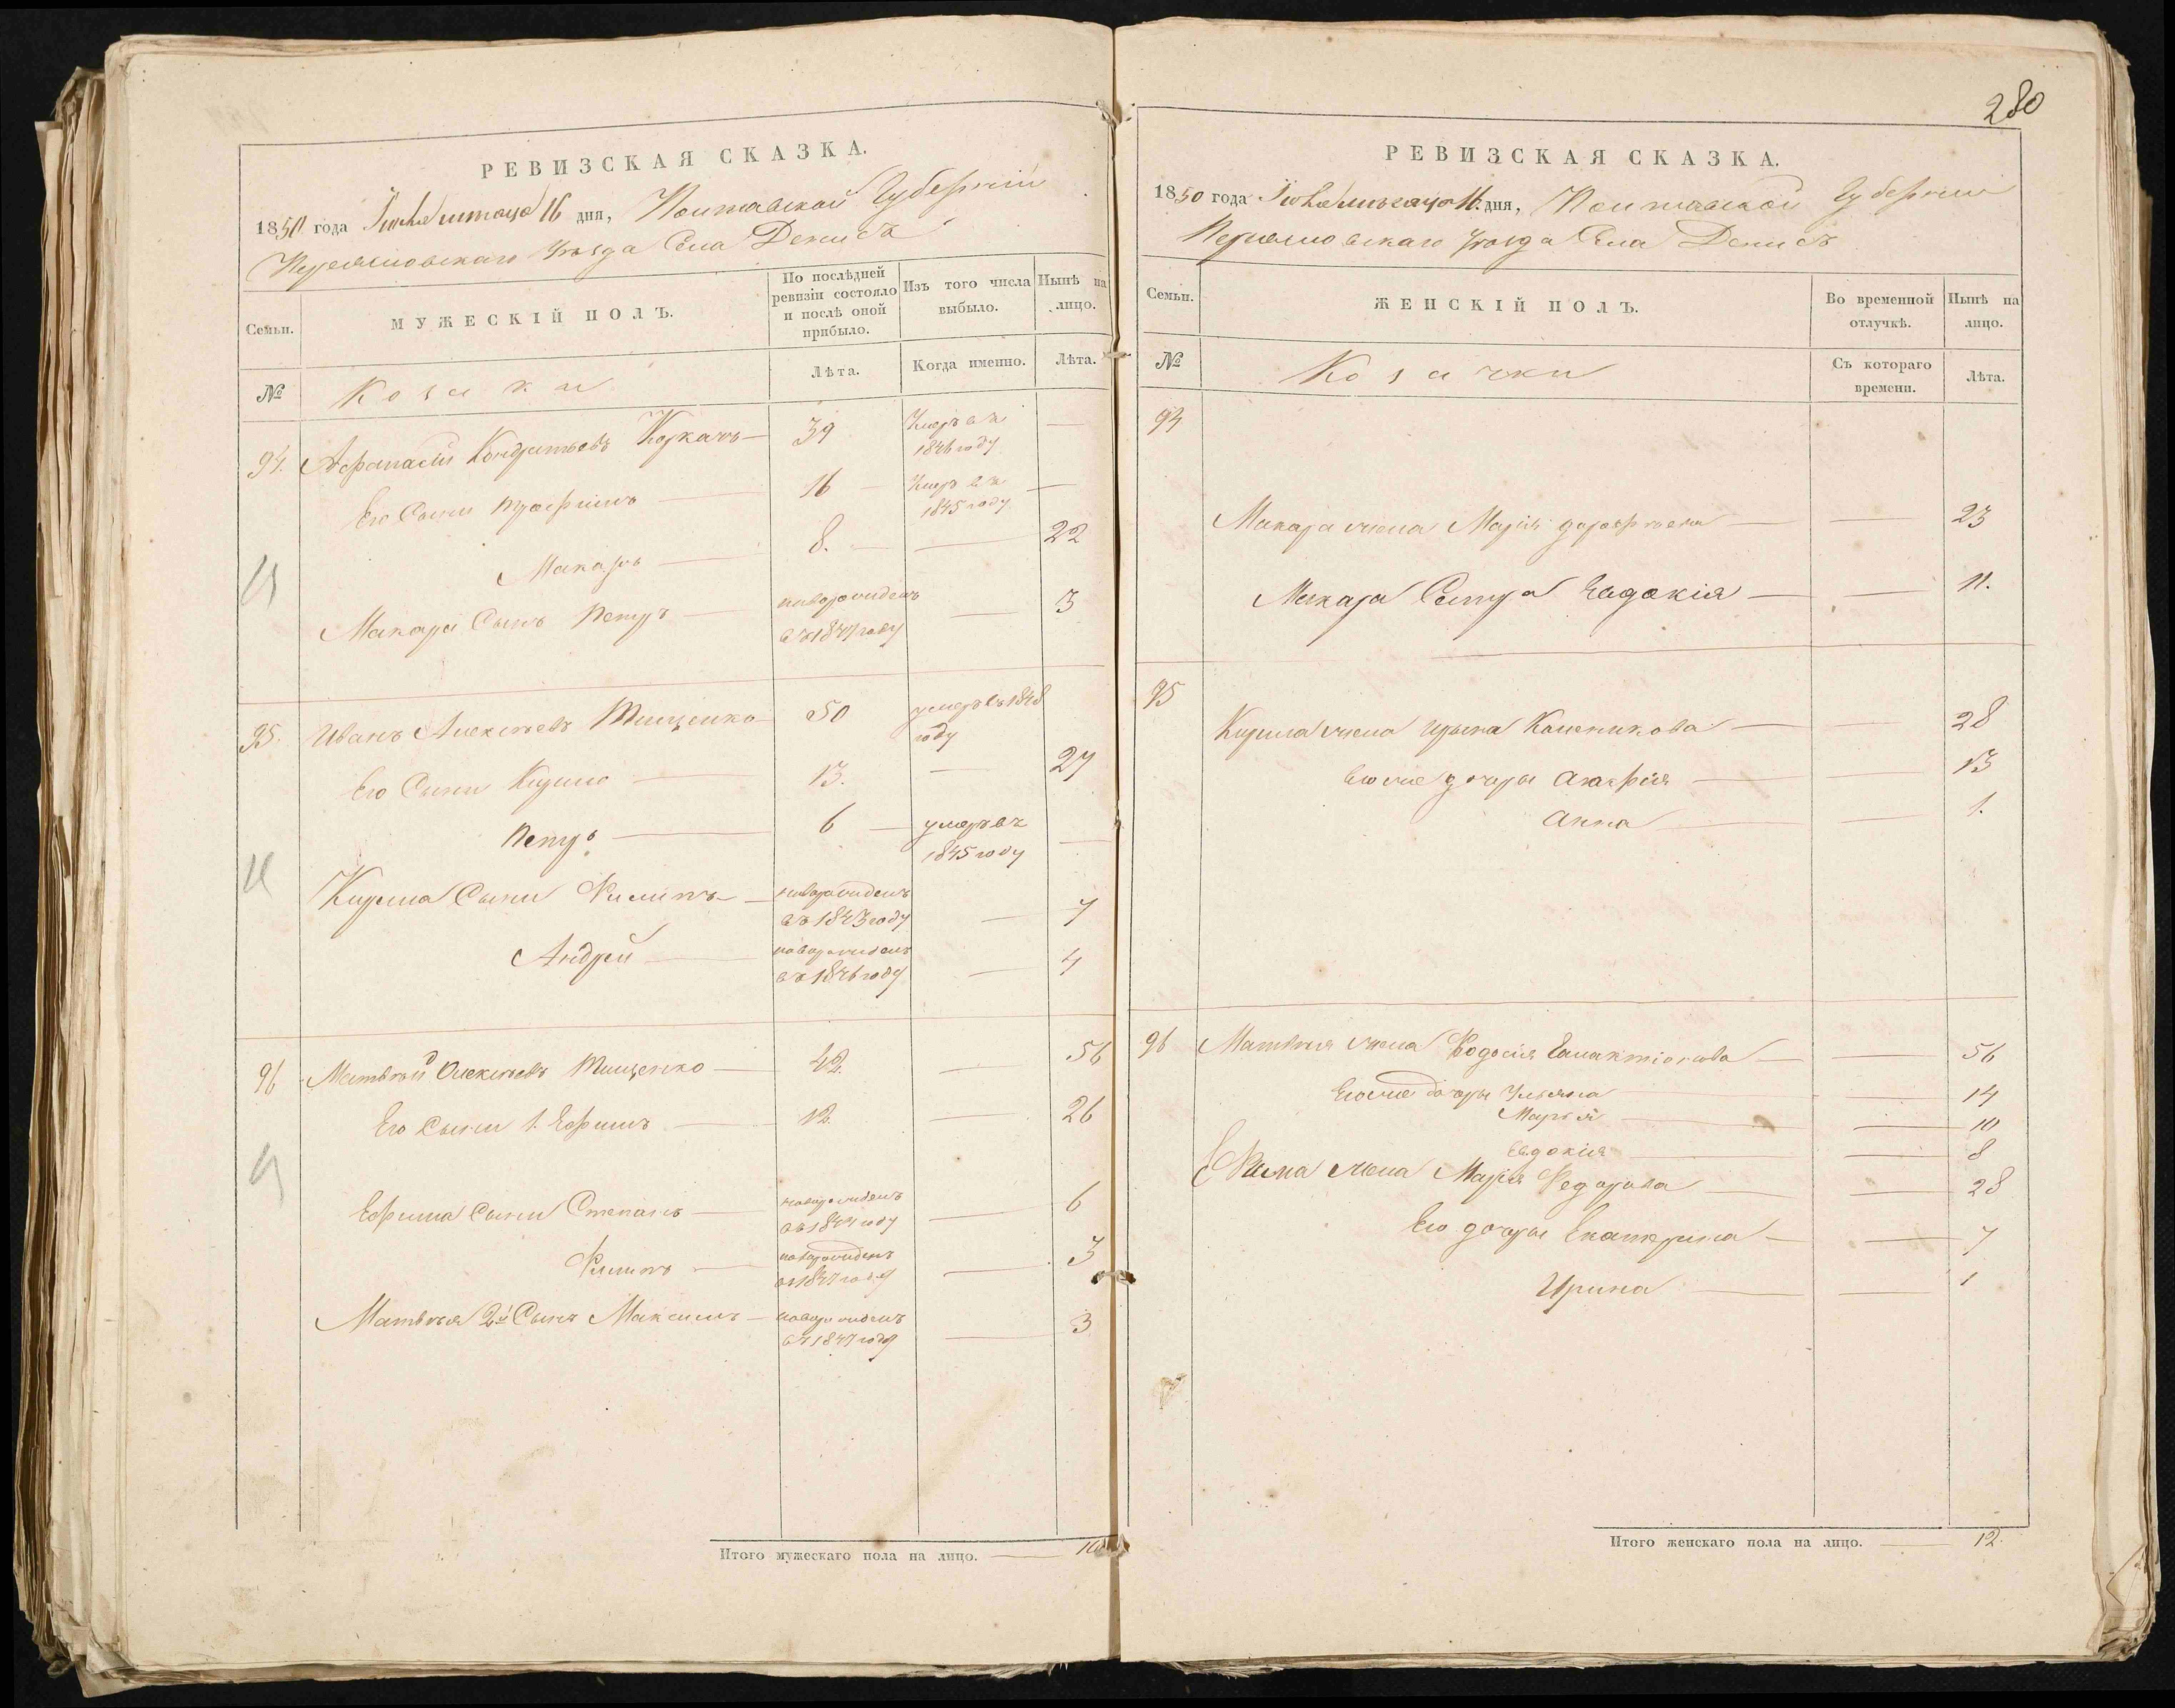 РЕВИЗСКАЯ СКАЗКА.
1850 года Іюня месяца 16 дня, Полтавской Губерніи
Переяславскаго Уезда Села Денисъ
Семьи.
МУЖЕСКІЙ ПОЛЪ.
По послѣдней ревизіи состояло и послѣ оной прибыло.
Изъ того числа выбыло.
Нынѣ на лицо.
№
Козаки
Лѣта.
Когда именно.
Лѣта.
94. Афанасій Кондратьевъ — 39 Умеръ въ 1846 году —
Его Сыни Трофимъ — 16 — Умеръ въ 1845 году —
Макаръ — 8. — — 22
Макара Сынъ Петръ — новорожденъ въ 1847 году — 3
95. Иванъ Алексѣевъ Тищенко — 50 умеръ въ 1848 году
Его Сыни Кирило — 13. — 27
Петръ — 6 — умеръ въ 1845 году —
Кирила Сыни Филипъ — новорожденъ въ 1843 году — 7
Андрей — новорожденъ въ 1846 году — 4
96 Матвѣй Олексѣевъ Тищенко — 42. — 56
Его Сыни 1. Ефимъ — 12. — 26
Ефима Сыни Степанъ — новорожденъ въ 1844 году — 6
Филипъ — новорожденъ въ 1847 году — 3
Матвѣя 2й Сынъ Максимъ — новорожденъ въ 1847 году — 3
Итого мужескаго пола на лицо. — 10
280
РЕВИЗСКАЯ СКАЗКА.
1850 года Іюня месяца 16. дня, Полтавской Губерніи
Переяславскаго Уезда Села Денисъ
Семьи.
ЖЕНСКІЙ ПОЛЪ.
Во временной отлучкѣ.
Нынѣ на лицо.
№
Козачки
Съ котораго времени.
Лѣта.
94
Макара жена Марія — — 23
Макара Сестра Евдокія — — 11.
95
Кирила жена Ирина — — 28
Его же дочери — — 13
Анна — — 1.
96 Матвѣя жена Феодосія Галактіонова — — 56
Его же дочери Ульяна — — 14
Марья — — 10
Евдокія — — 8
Ефима жена Марія Федорова — — 28
Его дочери Екатерина — — 7
Ирина — — 1
Итого женскаго пола на лицо. — 12.